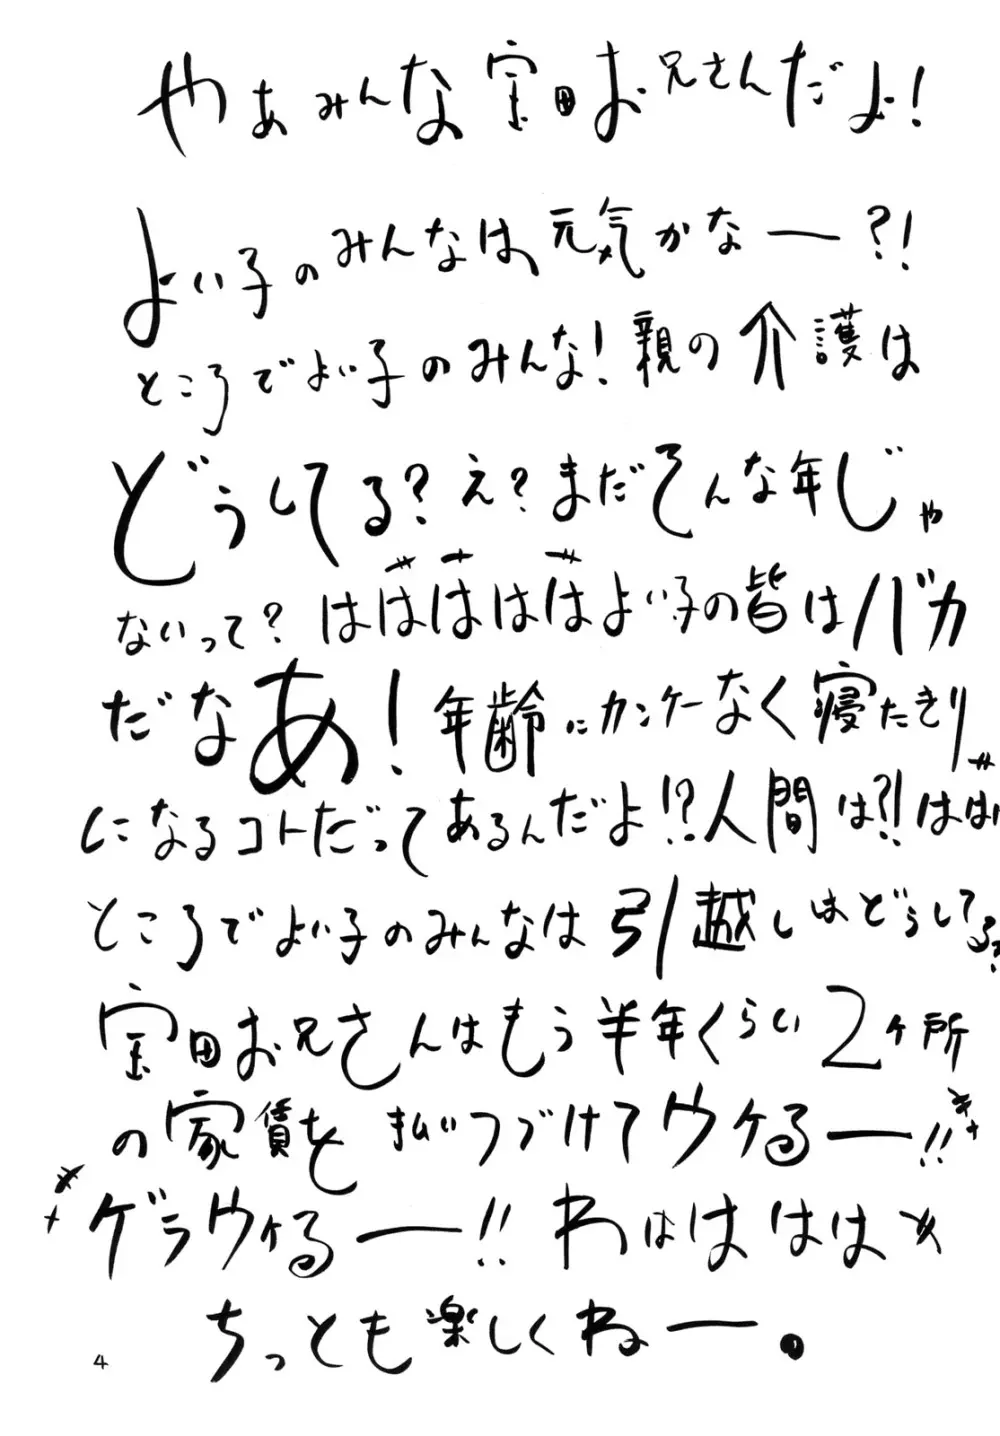 やぁみんな宝田お兄さんだよ！
よい子のみんなは元気かなー？！
ところでよい子のみんな！親の介護は
どうしてる？え？まだそんな年じゃ
ないって？はははははよい子の皆はバカ
だなあ！年齢にカンケーなく寝たきり
になるコトだってあるんだよ！？人間は？！はは
ところでよい子のみんなは引越しはどうしてる？
宝田お兄さんはもう半年くらい2ヶ所
の家賃を払いつづけてウケるー！！
ゲラウケるー！！わはははは
ちっとも楽しくねー。
4